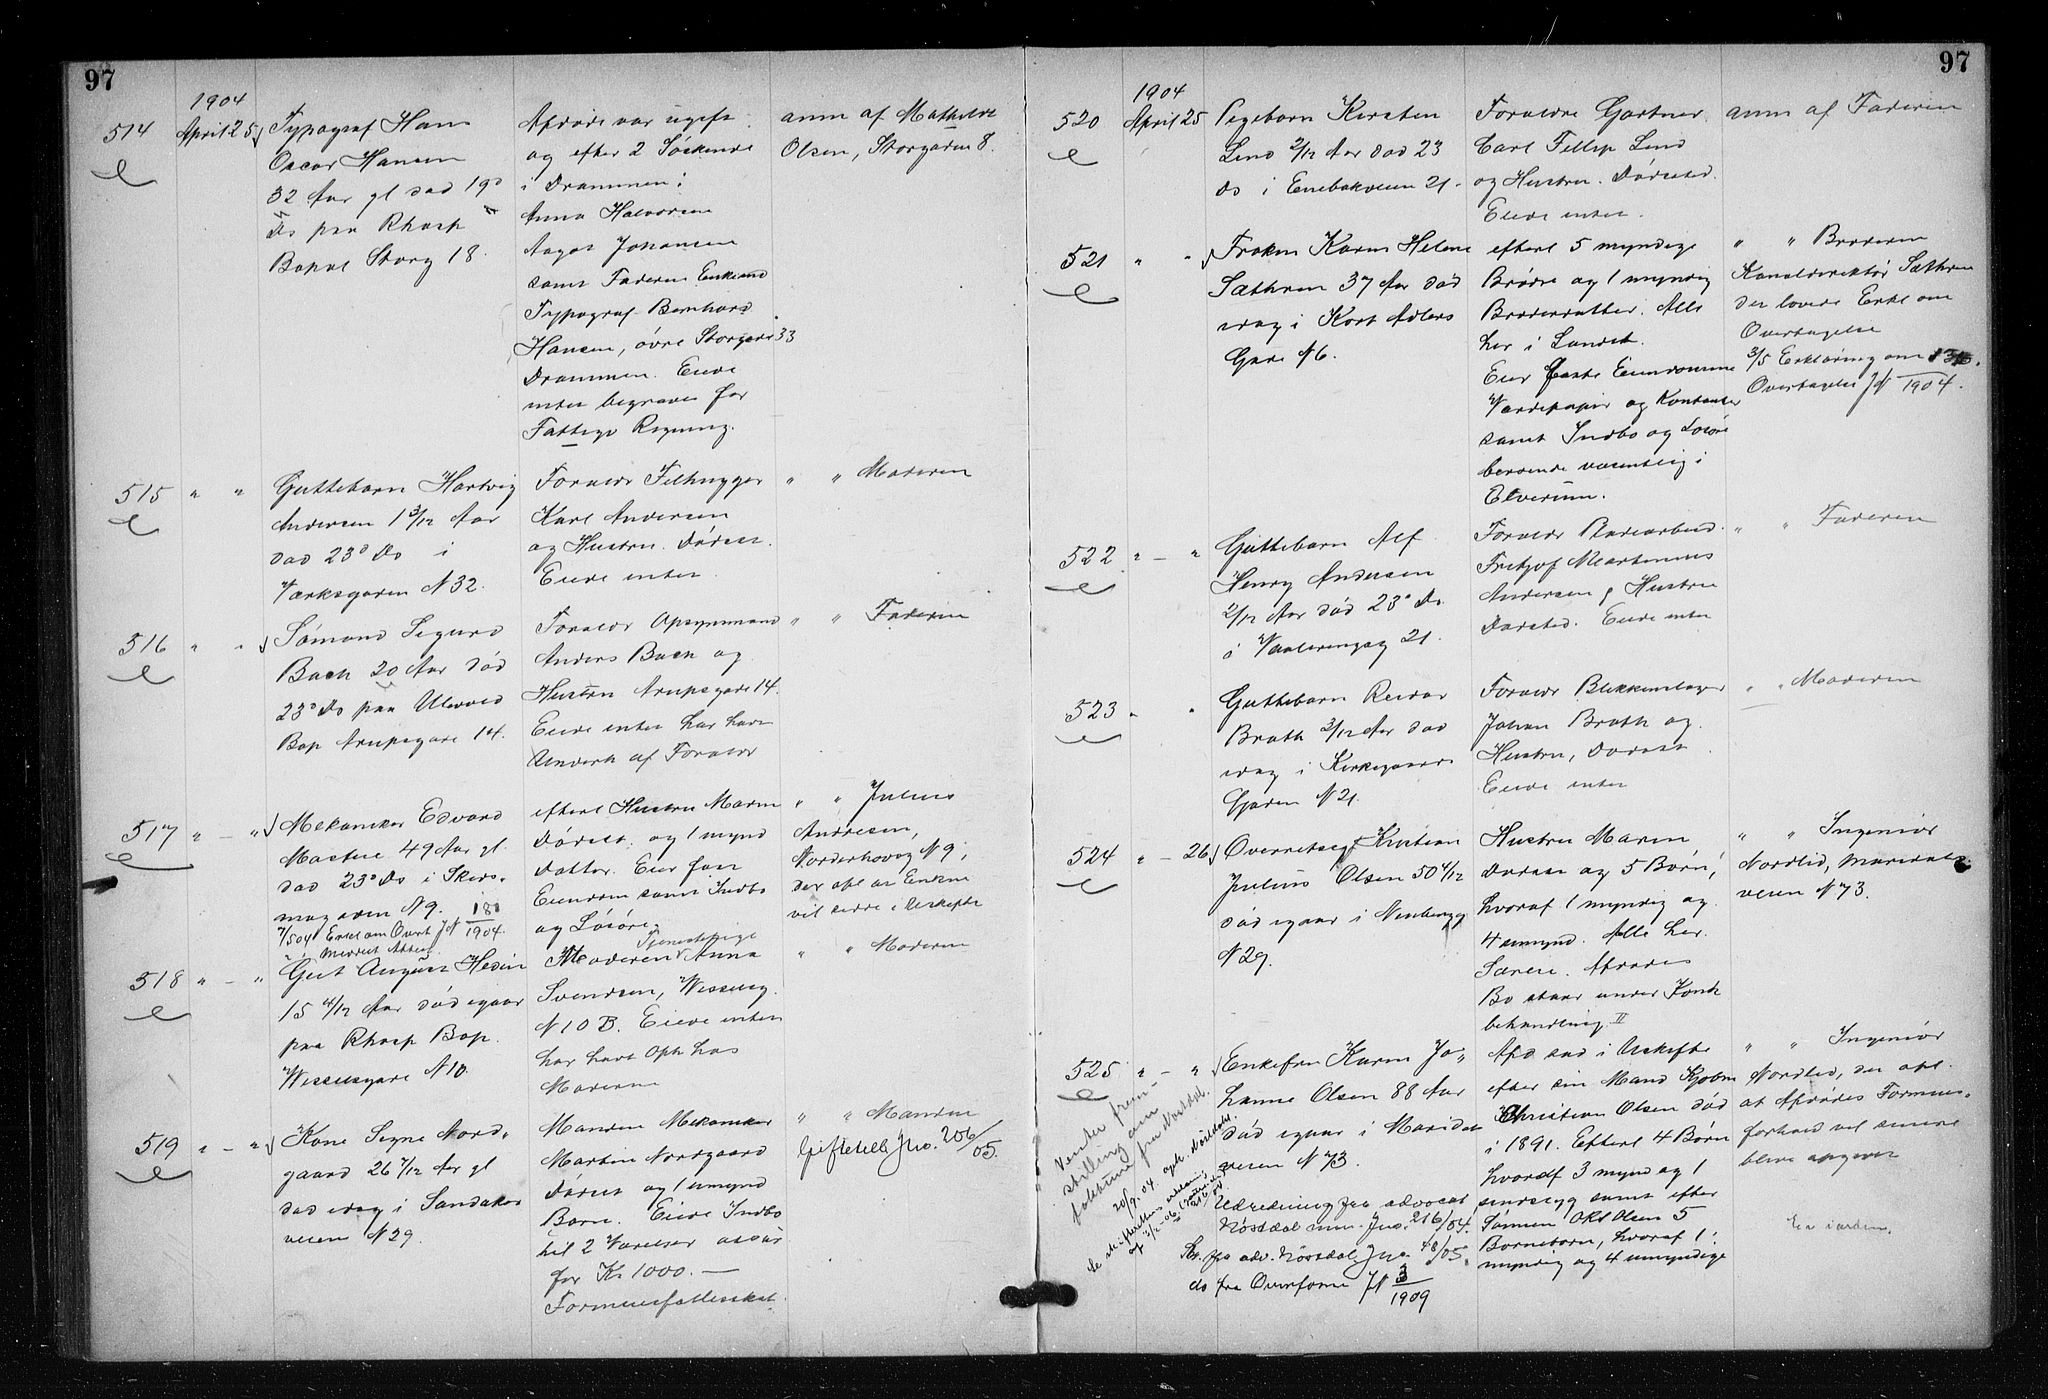 97
1904
514 April 25 Typograf Hans
Oscar Hansen
32 Aar gl død 19d
Ds paa Rhosp
Bopæl Storg 18.
Afdøde var ugift
og efter 2 Søskende
i Drammen:
Anna Halvorsen
Aagot Johansen
samt Faderen Enkemand
Typograf Bernhard
Hansen, øvre Storgade 33
Drammen. Eiede
intet begraves for
Fattigv Regning.
anm af Mathilde
Olsen, Storgaden 8.
515 " " Guttebarn Hartvig
Andersen 1 3/12 Aar
død 23d Ds i
Værksgaden N 32.
Forældr Filhugger
Karl Andersen
og Hustru. Dødsst.
Eiede intet.
" " Moderen
516 " " Sømand Sigurd
Bach 20 Aar død
23d Ds paa Ullevold
Bop Arupsgade 14.
Forældr Opsynsmand
Anders Bach og
Hustru Arupsgade 14.
Eiede intet har havt
Underh af Forældr
" " Faderen
517 " - " Mekaniker Edvard
49 Aar gl.
død 23d Ds i
N 9.
7/5 04 Erkl om Overt JN 181/1904.
efterl Hustru Maren
Dødsst. og 1 mynd
Datter. Eier fast
Eiendom samt Indbo
og Løsøre.
" " Julius
Andresen,
Norderhovg N 9,
der opl at Enken
vil sidde i Uskifte
518 " - " Gut August Hedin
15 4/12 Aar død igaar
paa Rhosp Bop.
Wesselsgade N 10.
Moderen Tjenestepige Anna
Svendsen, Wesselsg.
N 10 B. Eiede intet
har havt Oph hos
Moderen
" " Moderen
519 " - " Kone Signe Nord-
gaard 26 7/12 Aar gl
død idag i Sandaker
veien N 29.
Manden Mekaniker
Martin Nordgaard
Dødsst og 1 umynd
Barn. Eiede Indbo
til 2 Værelser assur
for Kr 1000. —
Formuesfællesskab.
" " Manden
Giftetill Jno. 206/05.
97
1904
520 April 25 Pigebarn Kirsten
Lind 2/12 Aar død 23
Ds i Enebakveien 21.
Forældre Gartner
Carl Fillip Lind
og Hustru. Dødssted.
Eiede intet.
anm af Faderen
521 " " Frøken Karen Helene
Sæthren 37 Aar død
idag i Kort Adlers
Gade N 6.
efterl 5 myndige
Brødre og 1 myndig
Broderdatter. Alle
her i Landet.
Eier faste Eiendomme
Værdipapir og Kontanter
samt Indbo og Løsøre
beroende væsentlig i
Elverum.
" " Broderen
Kanaldirektør Sæthren
der lovede Erkl om
Overtagelse
3/5 Erklæring om
Overtagelse JN /1904.
522 " - " Guttebarn Alf
Henry Andersen
2/12 Aar død 23d Ds.
i Vaalerengag 21.
Forældr
Fritjof Martinius
Andersen & Hustru
Dødssted. Eiede intet
" " Faderen
523 " " Guttebarn Reidar
Brath 3/12 Aar død
idag i Kirkegaards
Gaden N 21.
Forældr Blikkenslager
Johan Brath og
Hustru, Dødsst.
Eiede intet
" " Moderen
524 " - 26 Overretssagf Kristian
Julius Olsen 50 4/12
død igaar i Neubergg
N 29.
Hustru Maren
Dødsst og 5 Børn,
hvoraf 1 myndig og
4 umynd. Alle her.
Særeie. Afdødes
Bo staar under Konk
behandling. II
" " Ingeniør
Nordlid, Maridals
veien N 73.
525 " - " Enkefru Karen Jo-
hanne Olsen 88 Aar
død igaar i Maridals
veien N 73.
Afd sad i Uskifte
efter sin Mand Kjøbm
Christian Olsen død
i 1891. Efterl 4 Børn
hvoraf 3 mynd og 1
sindssyg samt efter
Sønnen Olsen 5
Børnebørn, hvoraf 1
myndig og 4 umyndige
" " Ingeniør
Nordlid, der opl.
at Afdødes Formues-
forhold vil senere
blive opgivet
Venter frem
stilling om
fra Nøstdal.
Udredning fra advocat
Nøstdal Jno. 216/04.
Skr. fra adv. Nøstdal Jno 48/05.
do fra Overform JN 3/1909